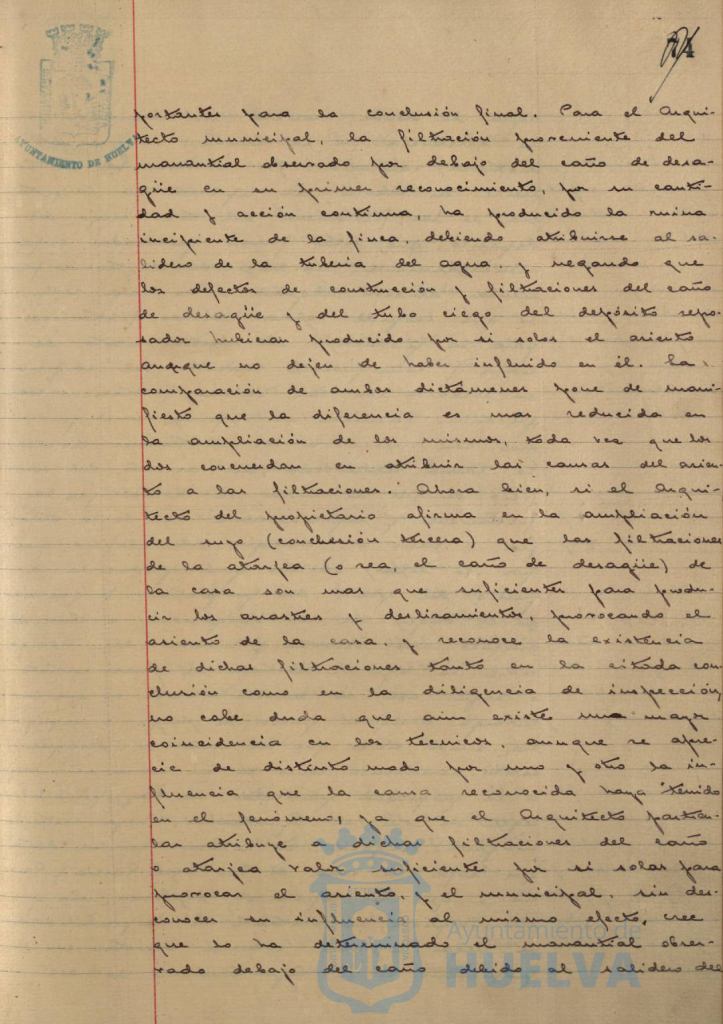 AYUNTAMIENTO DE HUELVA
portantes para la conclusión final. Para el Arqui-
tecto municipal, la filtración proveniente del
manantial observado por debajo del caño de desa-
güe en su primer reconocimiento, por su canti-
dad y acción continua, ha producido la ruina
incipiente de la finca, debiendo atribuirse al sa-
lidero de la tuberia del agua, y negando que
los defectos de construcción y filtraciones del caño
de desagüe y del tubo ciego del depósito repo-
sador hubieran producido por si solos el asiento
aunque no dejen de haber influido en él. La
comparación de ambos dictámenes pone de mani-
fiesto que la diferencia es mas reducida en
la ampliación de los mismos, toda vez que los
dos concuerdan en atribuir las causas del asien-
to a las filtraciones. Ahora bien, si el Arqui-
tecto del propietario afirma en la ampliación
del suyo (conclusión tercera) que las filtraciones
de la atarjea (o sea, el caño de desagüe) de
la casa son mas que suficientes para produ-
cir los arrastres y deslizamientos, provocando el
asiento de la casa, y reconoce la existencia
de dichas filtraciones tanto en la citada con-
clusión como en la diligencia de inspección,
no cabe duda que aún existe una mayor
coincidencia en los tecnicos, aunque se apre-
cie de distinto modo por uno y otro la in-
fluencia que la causa reconocida haya tenido
en el fenómeno, ya que el Arquitecto particu-
lar atribuye a dichas filtraciones del caño
o atarjea valor suficiente por si solas para
provocar el asiento, y el municipal, sin des-
conocer su influencia al mismo efecto, cree
que lo ha determinado el manantial obser-
vado debajo del caño debido al salidero del
Ayuntamiento de
HUELVA